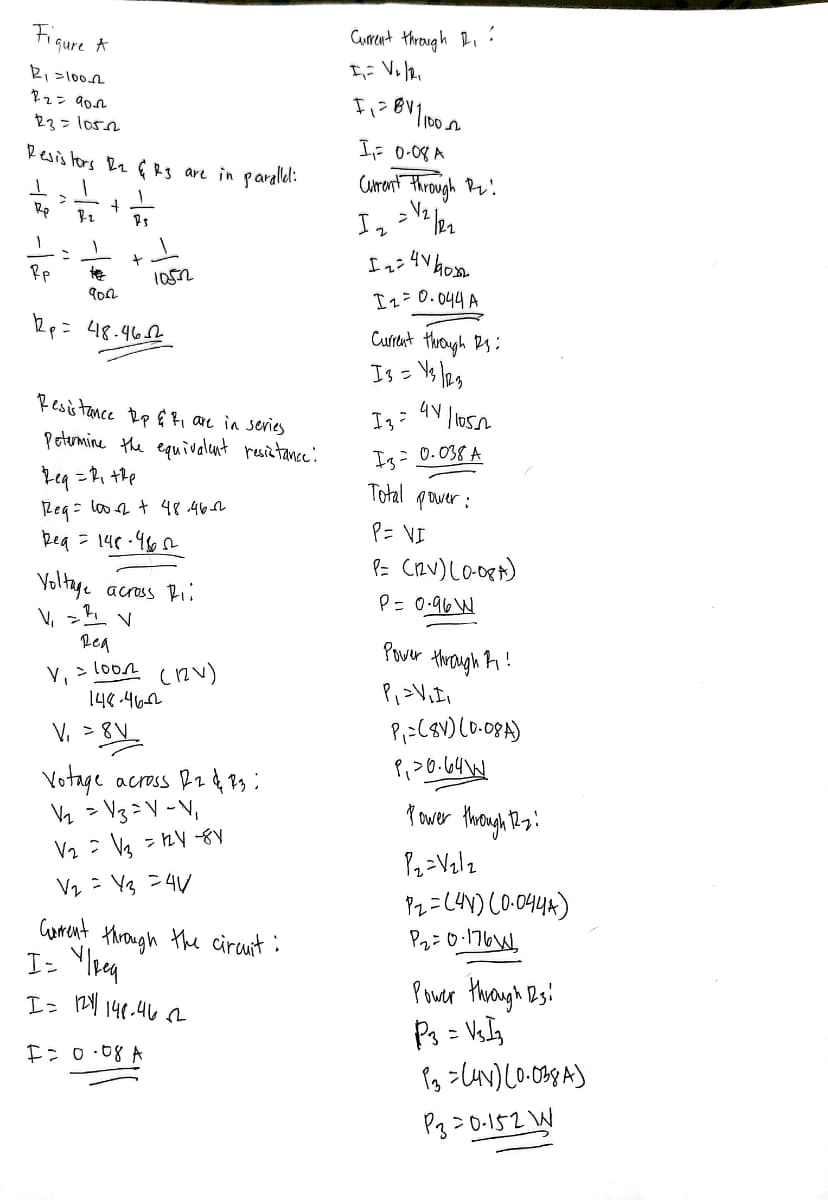 Figure A
R1 = 100Ω
R2 = 90Ω
R3 = 105Ω
Resistors R2 & R3 are in parallel:
1/Rp = 1/R2 + 1/R3
1/Rp = 1/90Ω + 1/105Ω
Rp = 48.46Ω
Resistance Rp & R1 are in series
Determine the equivalent resistance:
Req = R1 + Rp
Req = 100Ω + 48.46Ω
Req = 148.46Ω
Voltage across R1:
V1 = R1/Req V
V1 = 100Ω/148.46Ω (12V)
V1 = 8V
Votage across R2 & R3:
V2 = V3 = V - V1
V2 = V3 = 12V - 8V
V2 = V3 = 4V
Current through the circuit:
I = V/Req
I = 12V/148.46Ω
I = 0.08 A
Current through R1:
I1 = V1/R1
I1 = 8V/100Ω
I1 = 0.08 A
Current through R2:
I2 = V2/R2
I2 = 4V/90Ω
I2 = 0.044 A
Current through R3:
I3 = V3/R3
I3 = 4V/105Ω
I3 = 0.038 A
Total power:
P = VI
P = (12V)(0.08A)
P = 0.96W
Power through R1:
P1 = V1I1
P1 = (8V)(0.08A)
P1 = 0.64W
Power through R2:
P2 = V2I2
P2 = (4V)(0.044A)
P2 = 0.176W
Power through R3:
P3 = V3I3
P3 = (4V)(0.038A)
P3 = 0.152W